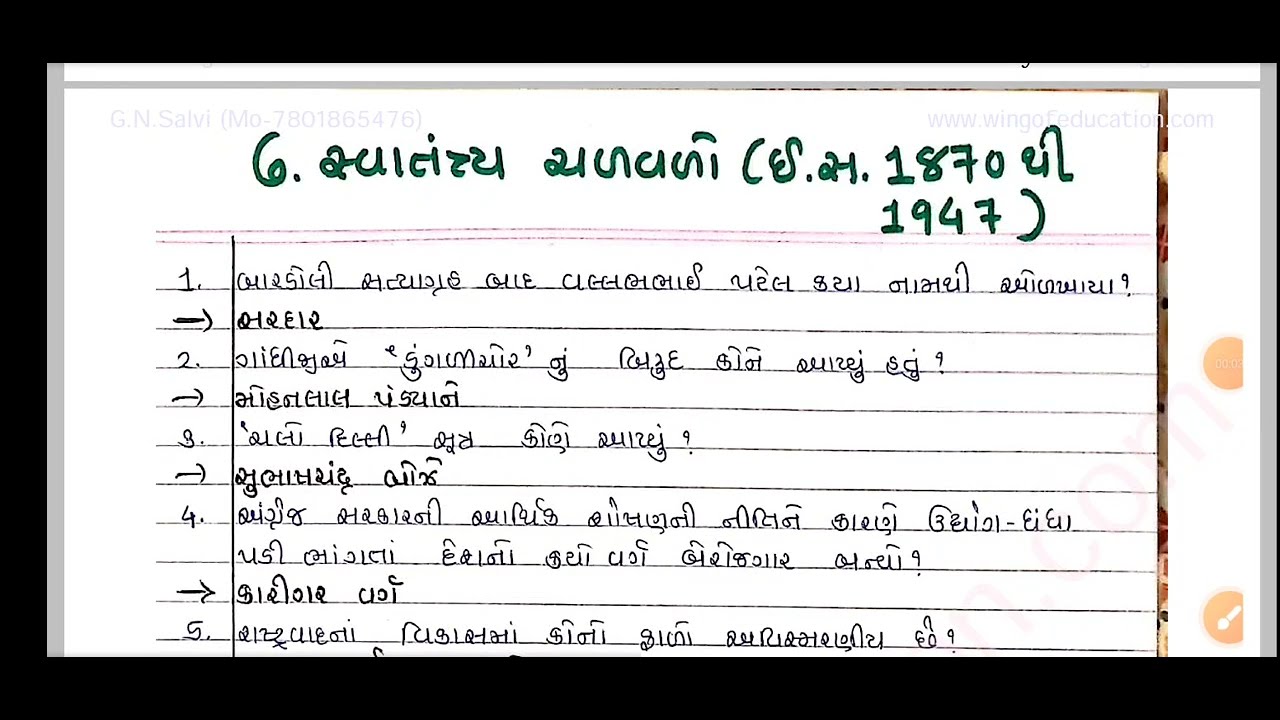 G.N.Salvi (Mo-7801865476)
www.wingofeducation.com
૭. સ્વાતંત્ર્ય ચળવળો (ઈ.સ. 1870 થી
1947)
1. બારડોલી સત્યાગ્રહ બાદ વલ્લભભાઈ પટેલ કયા નામથી ઓળખાયા?
→ સરદાર
2. ગાંધીજીએ 'ડુંગળીચોર' નું બિરુદ કોને આપ્યું હતું?
→ મોહનલાલ પંડ્યાને
3. 'ચલો દિલ્લી' સૂત્ર કોણે આપ્યું?
→ સુભાષચંદ્ર બોઝે
4. અંગ્રેજ સરકારની આર્થિક શોષણની નીતિને કારણે ઉદ્યોગ-ધંધા
પડી ભાંગતાં દેશનો કયો વર્ગ બેરોજગાર બન્યો?
→ કારીગર વર્ગ
5. રાષ્ટ્રવાદનાં વિકાસમાં કોનો ફાળો અવિસ્મરણીય છે?